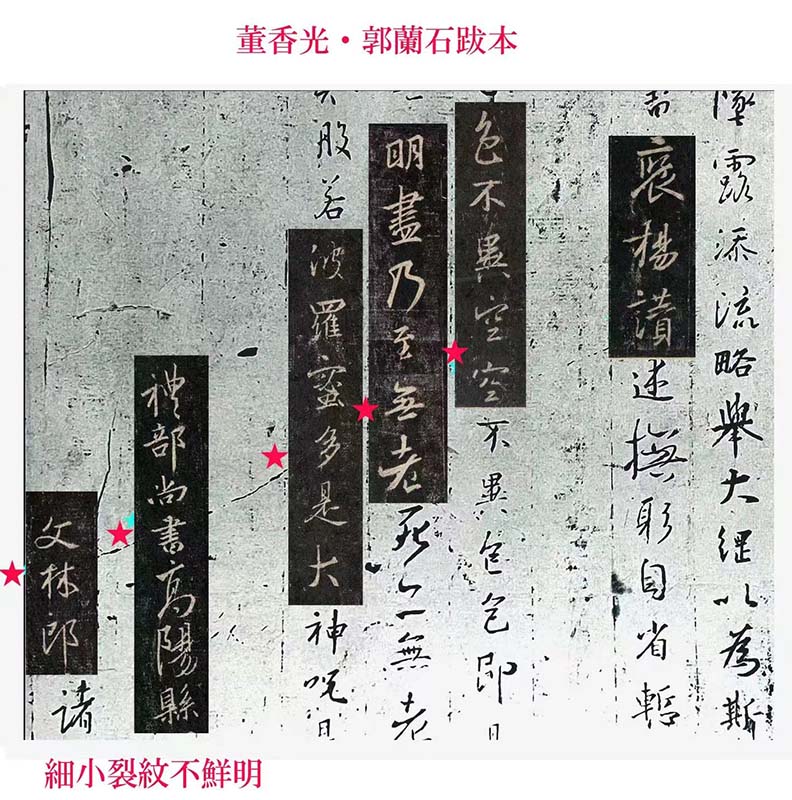 董香光・郭蘭石跋本
墜露添流略舉大綱以為斯
褒揚讚述撫躬自省慙
色不異空空不異色色即
明盡乃至無老死亦無老
般若波羅蜜多是大神咒
禮部尚書高陽縣
文林郎諸
細小裂紋不鮮明